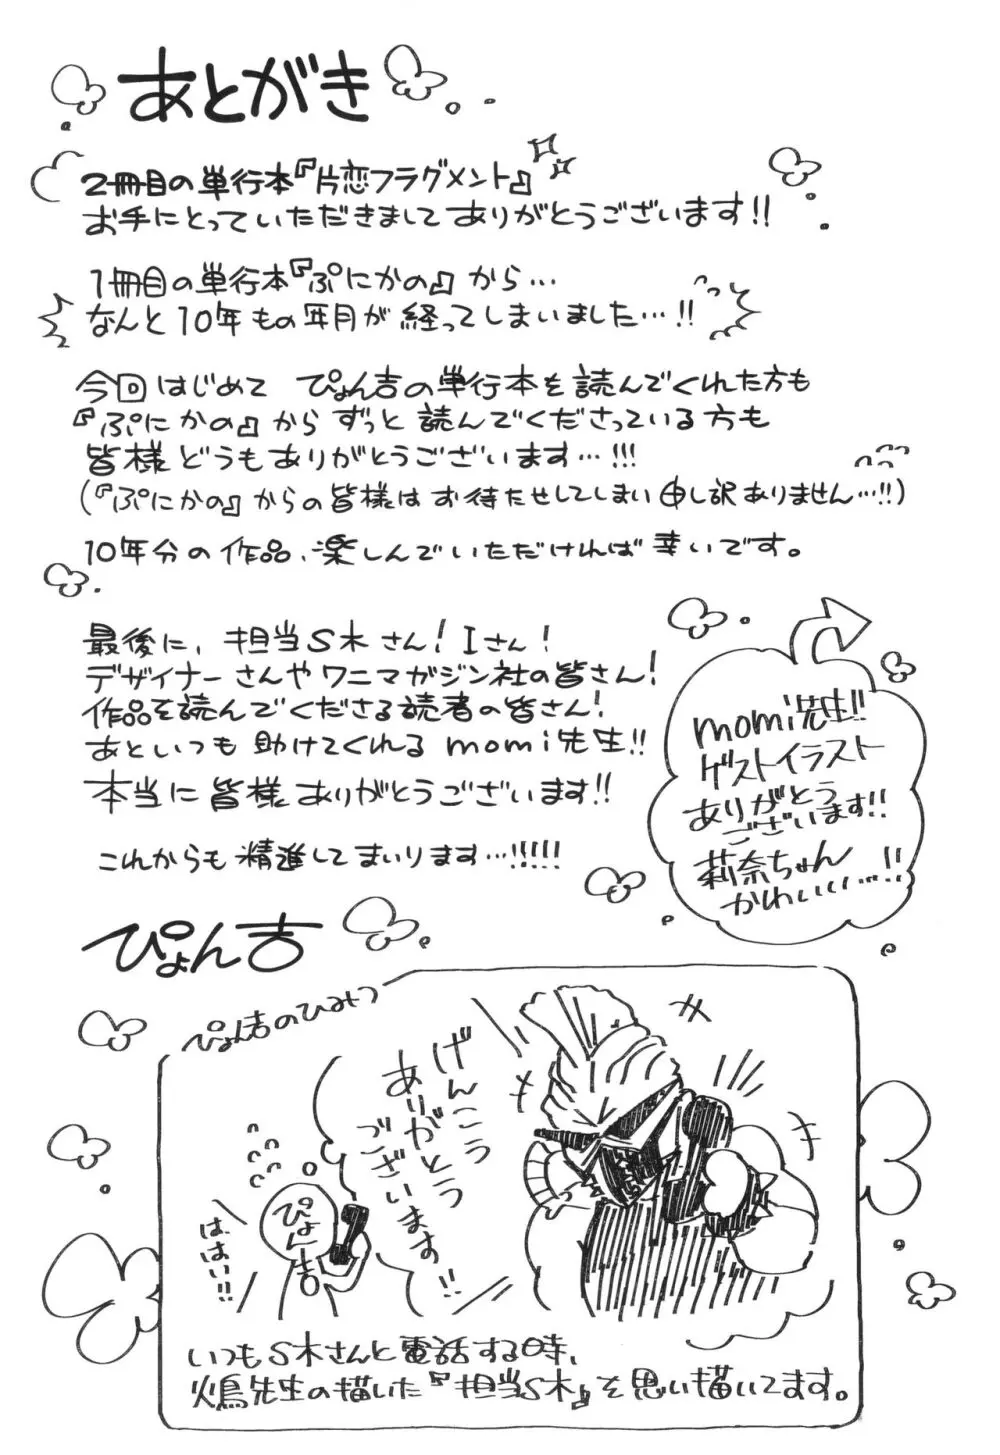 あとがき
2冊目の単行本『片恋フラグメント』
お手にとっていただきましてありがとうございます!!
1冊目の単行本『ぷにかの』から…
なんと10年もの年月が経ってしまいました…!!
今回はじめて ぴょん吉の単行本を読んでくれた方も
『ぷにかの』からずっと読んでくださっている方も
皆様どうもありがとうございます…!!!
(『ぷにかの』からの皆様はお待たせしてしまい申し訳ありません…!!)
10年分の作品、楽しんでいただければ幸いです。
最後に、担当S木さん!Iさん!
デザイナーさんやワニマガジン社の皆さん!
作品を読んでくださる読者の皆さん!
あといつも助けてくれるmomi先生!!
本当に皆様ありがとうございます!!
これからも精進してまいります…!!!!!
momi先生!!
ゲストイラスト
ありがとう
ございます!!
莉奈ちゃん
かわいい…!!
ぴょん吉
ぴょん吉のひみつ
げんこう
ありがとう
ございます!!
ぴょん吉
は、はい!!
いつもS木さんと電話する時、
火鳥先生の描いた『担当S木』を思い描いてます。